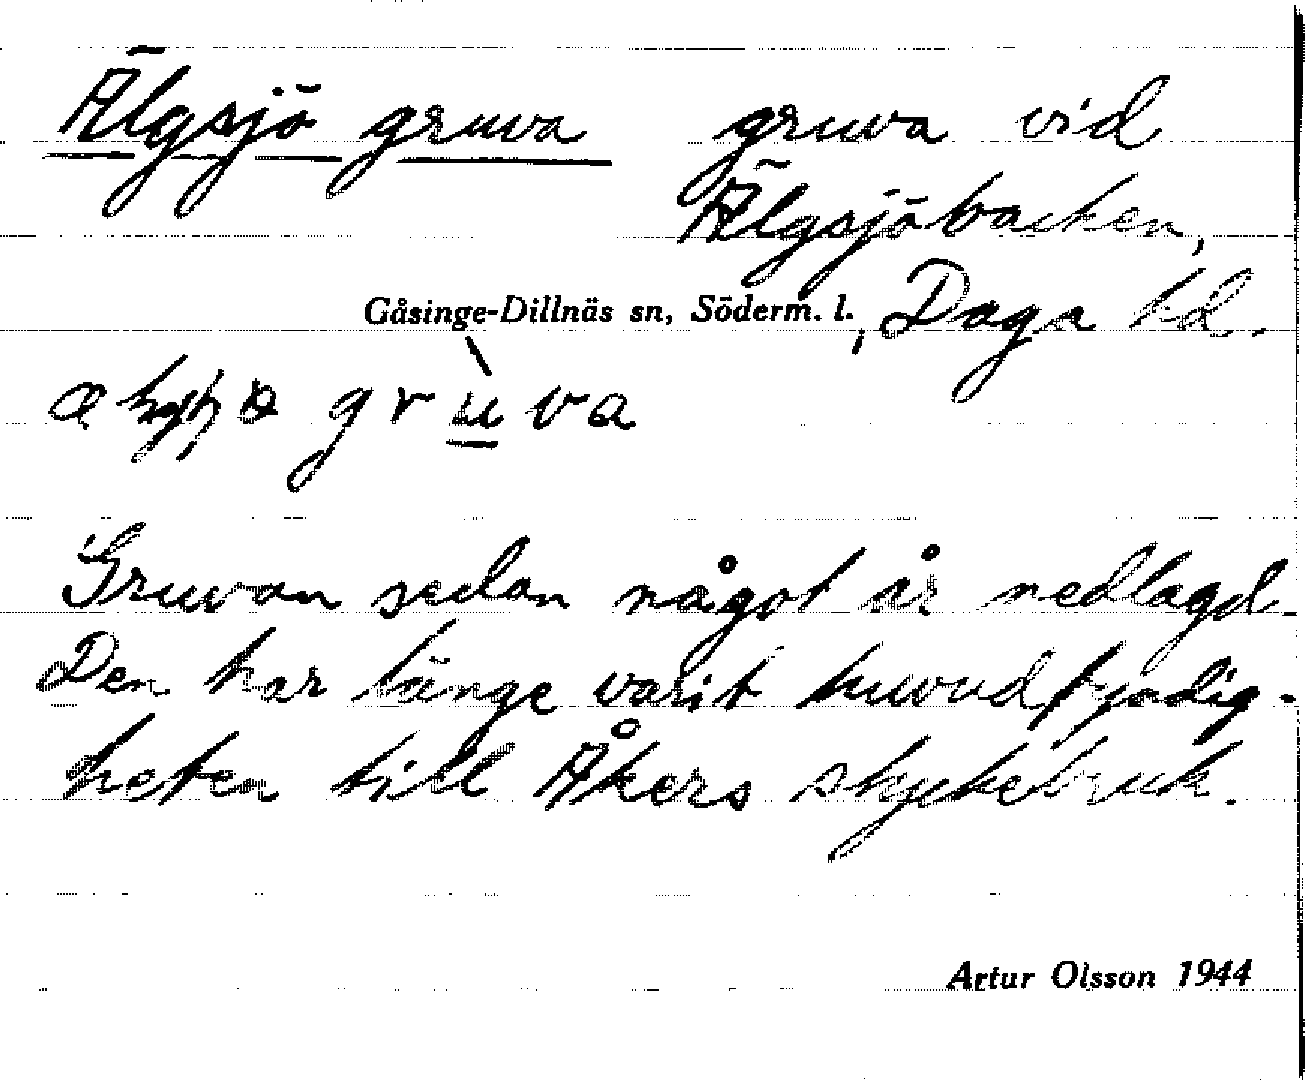 Älgsjö gruva gruva vid
Älgsjöbacken,
Gåsinge-Dillnäs sn, Söderm. l., Daga hd.
gruva
Gruvan sedan något år nedlagd.
Den har länge varit huvudfyndig-
heten till Åkers styckebruk.
Artur Olsson 1944